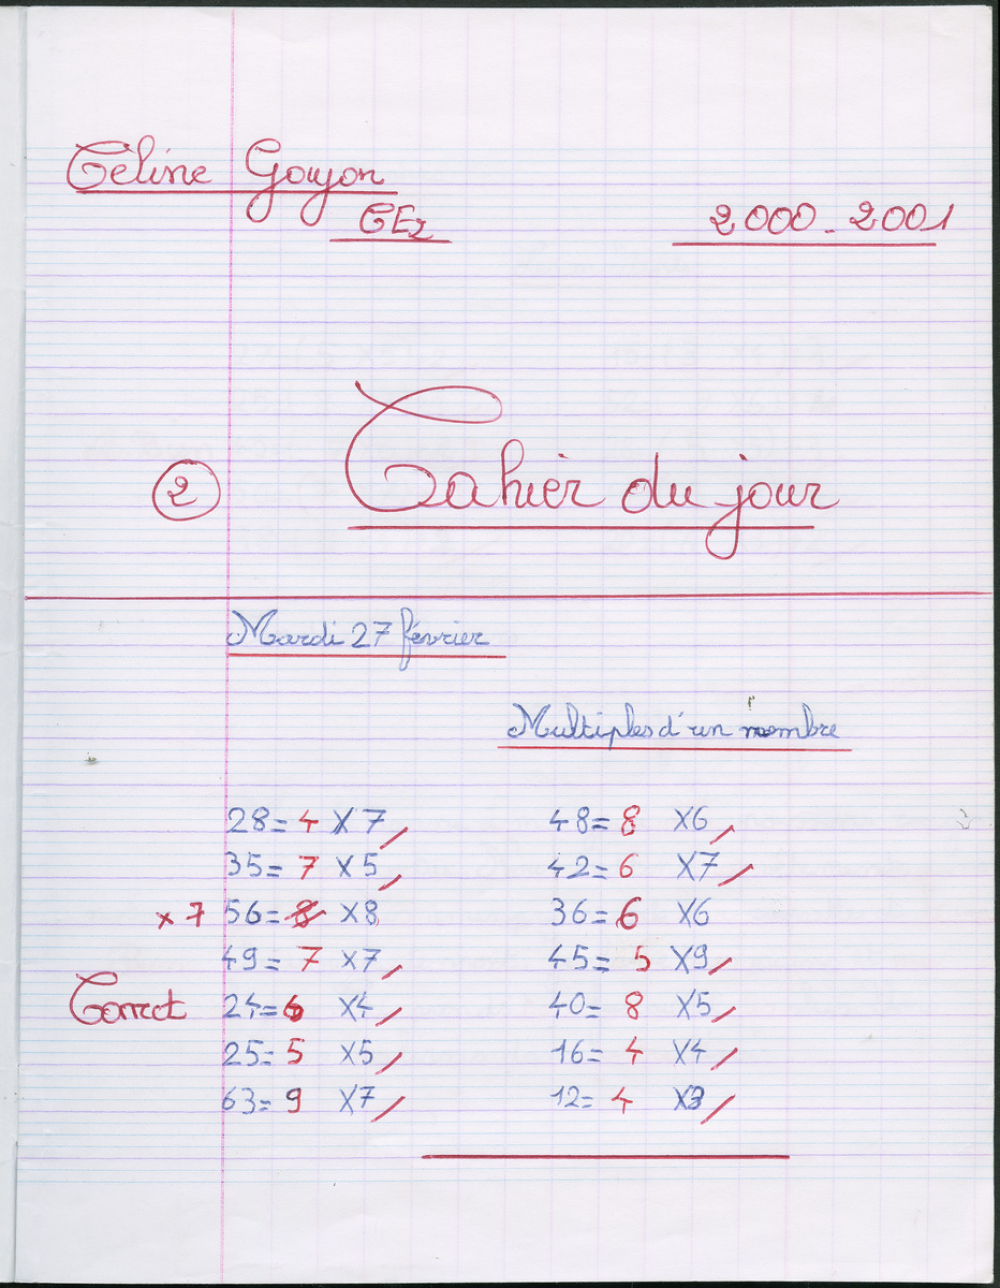 Céline Goujon
CE2
2000-2001
2 Cahier du jour
Mardi 27 février
Multiples d'un nombre
28 = 4 x 7
35 = 7 x 5
x 7 56 = 8 x 8
49 = 7 x 7
Correct 24 = 6 x 4
25 = 5 x 5
63 = 9 x 7
48 = 8 x 6
42 = 6 x 7
36 = 6 x 6
45 = 5 x 9
40 = 8 x 5
16 = 4 x 4
12 = 4 x 3